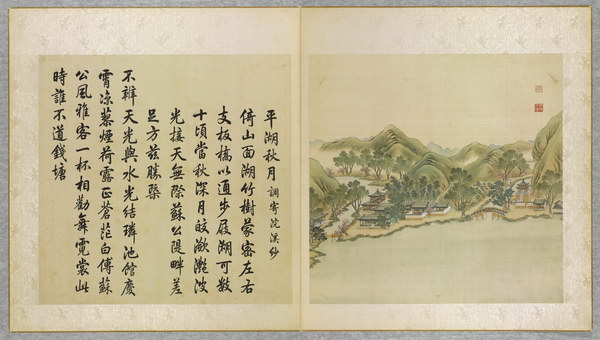 平湖秋月 調寄浣溪紗
倚山面湖竹樹蒙密左右
支板橋以通步屧湖可數
十頃當秋深月皎瀲灩波
光接天無際蘇公隄畔差
足方茲勝槩
不辨天光與水光結璘池館慶
霄涼蓼煙荷露正蒼茫白傅蘇
公風雅客一杯相勸舞霓裳此
時誰不道錢塘